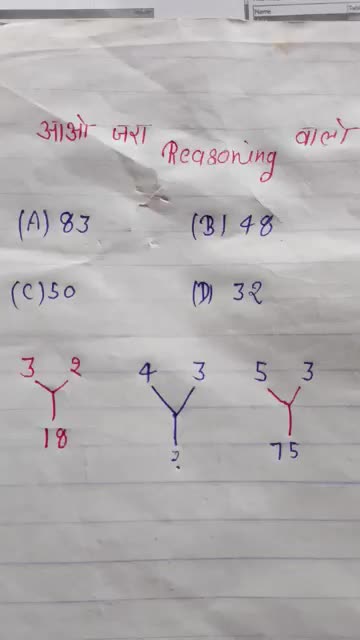 Name
आओ जरा Reasoning वालो
(A) 83 (B) 48
(C) 50 (D) 32
3 2 4 3 5 3
18 ? 75